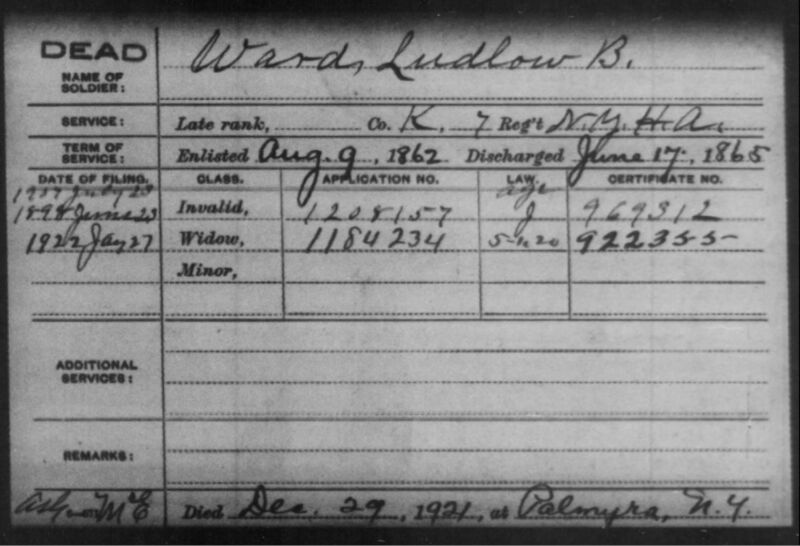 DEAD
NAME OF SOLDIER:
Ward, Ludlow B.
SERVICE: Late rank, Co. K, 7 Reg't N.Y.H.A.
TERM OF SERVICE: Enlisted Aug. 9, 1862 Discharged June 17, 1865
DATE OF FILING. CLASS. APPLICATION NO. LAW. CERTIFICATE NO.
July 23 age
1898 June 23 Invalid, 1208157 J 969312
1922 Jay 27 Widow, 1184234 5-1-20 922355
Minor,
ADDITIONAL SERVICES:
REMARKS:
Died Dec. 29, 1921, at Palmyra, N.Y.